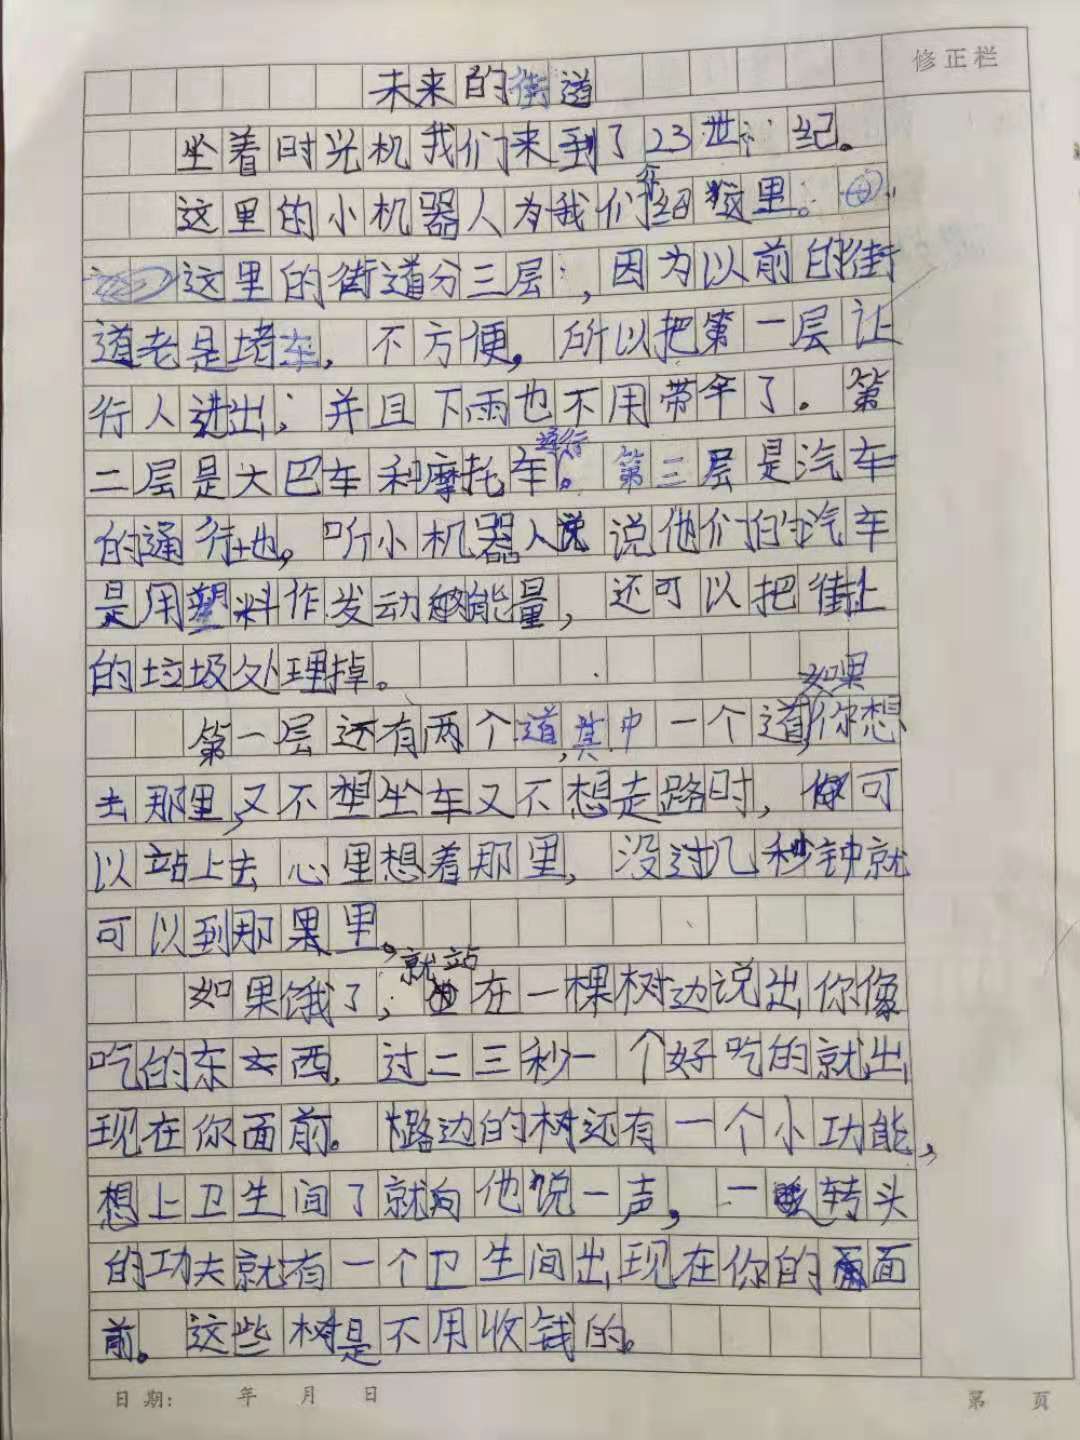 修正栏
未来的街道
坐着时光机我们来到了23世纪。
这里的小机器人为我们介绍这里。
这里的街道分三层,因为以前的街
道老是堵车,不方便,所以把第一层让
行人进出;并且下雨也不用带伞了。第
二层是大巴车和摩托车通行。第三层是汽车
的通行地。听小机器人说说他们的汽车
是用塑料作发动的能量,还可以把街上
的垃圾处理掉。
第一层还有两个道,其中一个道,如果你想
去那里,又不想坐车又不想走路时,你可
以站上去心里想着那里,没过几秒钟就
可以到那里。
如果饿了,就站在一棵树边说出你像
吃的东西,过二三秒一个好吃的就出
现在你面前。路边的树还有一个小功能,
想上卫生间了就向他说一声,一转头
的功夫就有一个卫生间出现在你的面
前。这些树是不用收钱的。
日期: 年 月 日 第 页